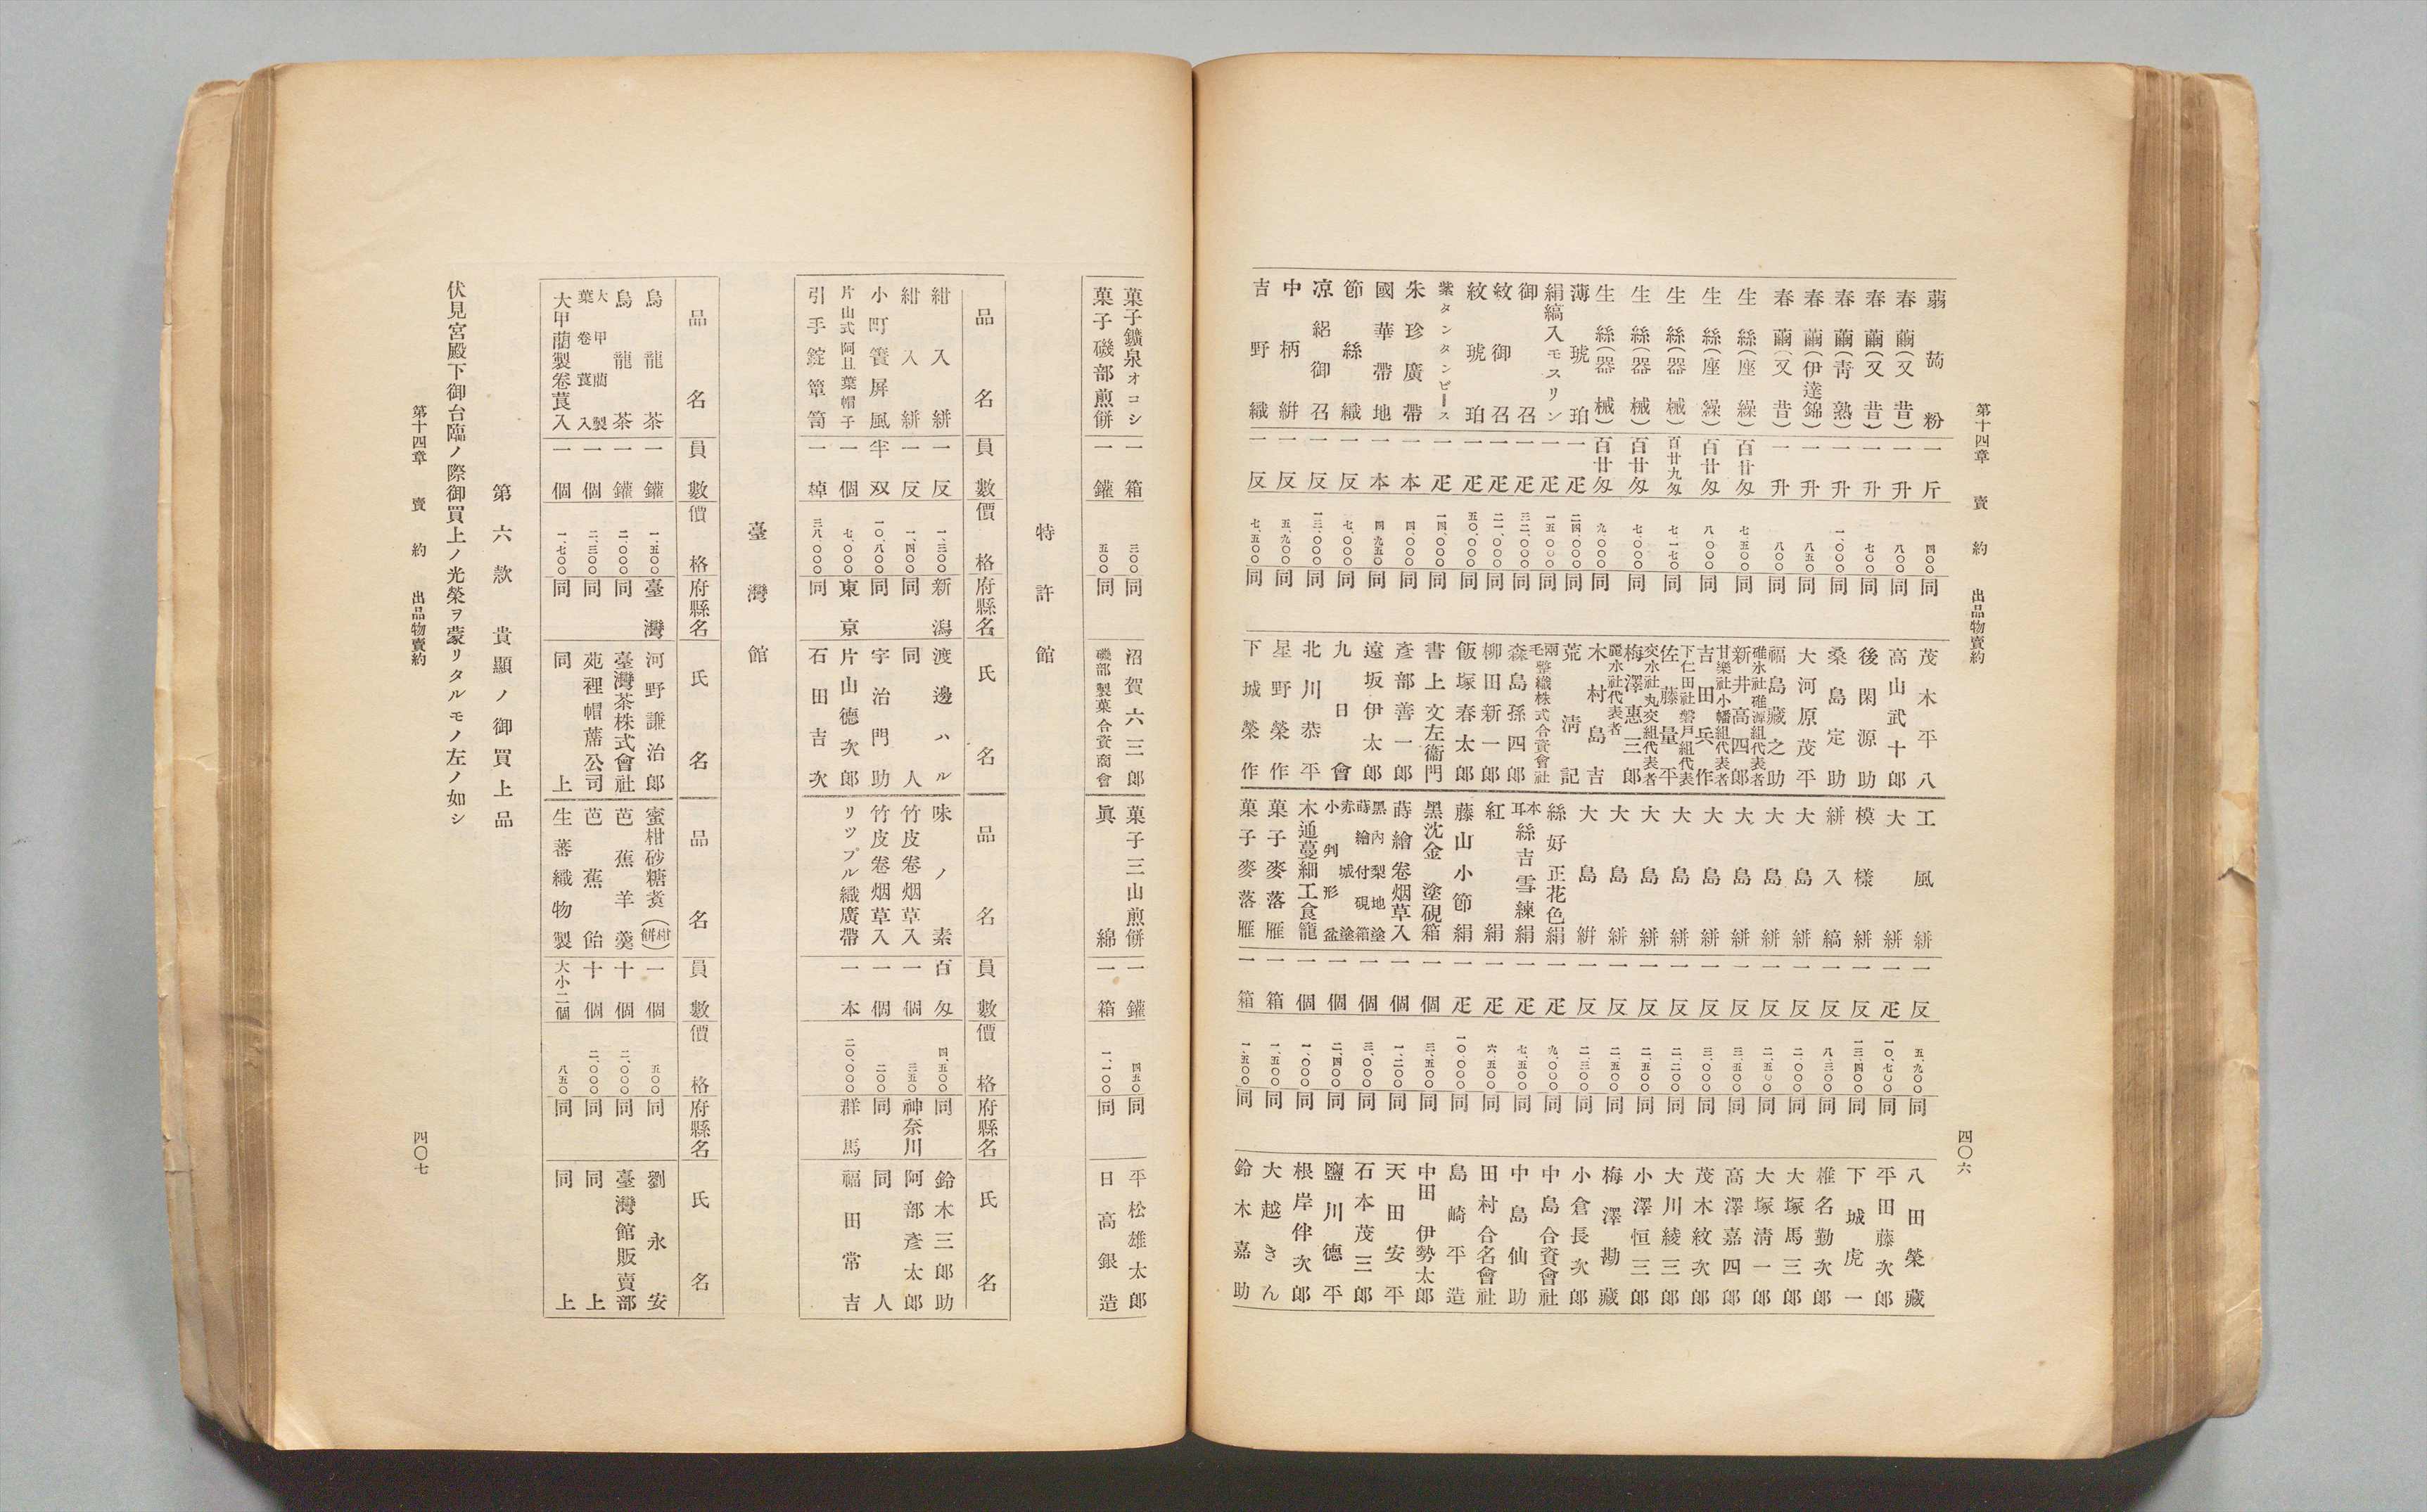 第十四章 賣約 出品物賣約
蒻蒟粉 一斤 四〇〇 同 茂木平八
春繭(又昔) 一升 八〇〇 同 高山武十郎
春繭(又昔) 一升 七〇〇 同 後閑源助
春繭(靑熟) 一升 一、〇〇〇 同 桑島定助
春繭(伊達錦) 一升 八五〇 同 大河原茂平
春繭(又昔) 一升 八〇〇 同 福島藏之助
生絲(座繰) 百廿匁 七、五〇〇 同 碓氷社碓源組代表者 新井高四郎
生絲(座繰) 百廿匁 八、〇〇〇 同 甘樂社小幡組代表者 吉田兵作
生絲(器械) 百廿九匁 七、一七〇 同 下仁田社磐戸組代表 佐藤量平
生絲(器械) 百廿匁 七、〇〇〇 同 交水社丸交組代表者 梅澤惠三郎
生絲(器械) 百廿匁 九、〇〇〇 同 麗水社代表者 木村島吉
薄琥珀 一疋 二四、〇〇〇 同 荒淸記
絹縞入モスリン 一疋 一五、〇〇〇 同 兩毛整織株式合資會社
御召 一疋 三二、〇〇〇 同 森島孫四郎
紋御召 一疋 二一、〇〇〇 同 柳田新一郎
紋琥珀 一疋 五〇、〇〇〇 同 飯塚春太郎
紫タンタンピース 一疋 一四、〇〇〇 同 書上文左衞門
朱珍廣帶 一本 四、〇〇〇 同 彥部善一郎
國華帶地 一本 四、九五〇 同 遠坂伊太郎
節絲織 一反 七、〇〇〇 同 九日會
凉絽御召 一反 一三、〇〇〇 同 北川恭平
中柄絣 一反 五、九〇〇 同 星野榮作
吉野織 一反 七、五〇〇 同 下城榮作
工風絣 一反 五、九〇〇 同 八田榮藏
大絣 一疋 一〇、七〇〇 同 平田藤次郎
模樣絣 一反 一三、四〇〇 同 下城虎一
絣入縞 一反 八、三〇〇 同 椎名勤次郎
大島絣 一反 二、〇〇〇 同 大塚馬三郎
大島絣 一反 二、五〇〇 同 大塚淸一郎
大島絣 一反 三、五〇〇 同 高澤嘉四郎
大島絣 一反 三、〇〇〇 同 茂木紋次郎
大島絣 一反 二、二〇〇 同 大川綾三郎
大島絣 一反 二、五〇〇 同 小澤恒三郎
大島絣 一反 二、五〇〇 同 梅澤勘藏
大島絣 一反 二、三〇〇 同 小倉長次郎
絲好正花色絹 一疋 九、〇〇〇 同 中島合資會社
本耳絲吉雪練絹 一疋 七、五〇〇 同 中島仙助
紅絹 一疋 六、五〇〇 同 田村合名會社
藤山小節絹 一疋 一〇、〇〇〇 同 島崎平造
黑沈金塗硯箱 一個 三、五〇〇 同 中田伊勢太郎
蒔繪卷烟草入 一個 一、二〇〇 同 天田安平
黑內梨地塗蒔繪付硯箱 一個 三、〇〇〇 同 石本茂三郎
赤城塗小判形盆 一個 二、四〇〇 同 鹽川德平
木通蔓細工食籠 一個 一、〇〇〇 同 根岸伴次郎
菓子麥落雁 一箱 一、五〇〇 同 大越きん
菓子麥落雁 一箱 一、五〇〇 同 鈴木嘉助
四〇六
菓子鑛泉オコシ 一箱 三〇〇 同 沼賀六三郎
菓子磯部煎餅 一鑵 五〇〇 同 磯部製菓合資商會
菓子三山煎餅 一鑵 四五〇 同 平松雄太郎
眞綿 一箱 一、一〇〇 同 日高銀造
特許館
品名 員數 價格 府縣名 氏名 品名 員數 價格 府縣名 氏名
紺入絣 一反 一、三〇〇 新潟 渡邊ハル
紺入絣 一反 一、四〇〇 同 同人
小町簀屏風 半双 一〇、八〇〇 同 宇治門助
片山式阿且葉帽子 一個 七、〇〇〇 東京 片山德次郎
引手錠簞笥 一棹 三八、〇〇〇 同 石田吉次
味ノ素 百匁 四、五〇〇 同 鈴木三郎助
竹皮卷烟草入 一個 三五〇 神奈川 阿部彥太郎
竹皮卷烟草入 一個 二〇〇 同 同人
リップル織廣帶 一本 二〇、〇〇〇 群馬 福田常吉
臺灣館
品名 員數 價格 府縣名 氏名 品名 員數 價格 府縣名 氏名
烏龍茶 一鑵 一、五〇〇 臺灣 河野謙治郎
烏龍茶 一鑵 二、〇〇〇 同 臺灣茶株式會社
大甲藺製葉卷莨入 一個 二、三〇〇 同 苑裡帽蓆公司
大甲藺製卷莨入 一個 一、七〇〇 同 同上
蜜柑砂糖煑(柑餅) 一個 五〇〇 同 劉永安
芭蕉羊羹 十個 二、〇〇〇 同 臺灣館販賣部
芭蕉飴 十個 二、〇〇〇 同 同上
生蕃織物製 大小二個 八五〇 同 同上
第六款 貴顯ノ御買上品
伏見宮殿下御台臨ノ際御買上ノ光榮ヲ蒙リタルモノ左ノ如シ
第十四章 賣約 出品物賣約
四〇七